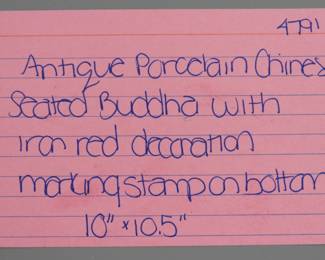 4791
Antique Porcelain Chines
Seated Buddha with
iron red decoration
marking stamp on bottom
10" x 10.5"